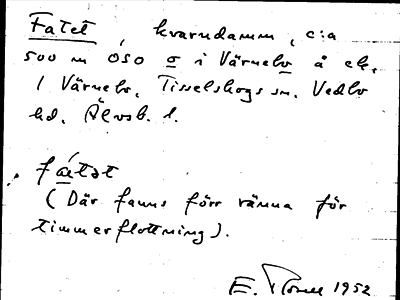 Fatet, kvarndamm, c:a
500 m OSO σ i Värnebo å ek.
1 Värnebo, Tisselskogs sn. Vedbo
hd. Älvsb. l.
fάtət
(Där fanns förr ränna för
timmerflottning).
E. 1952